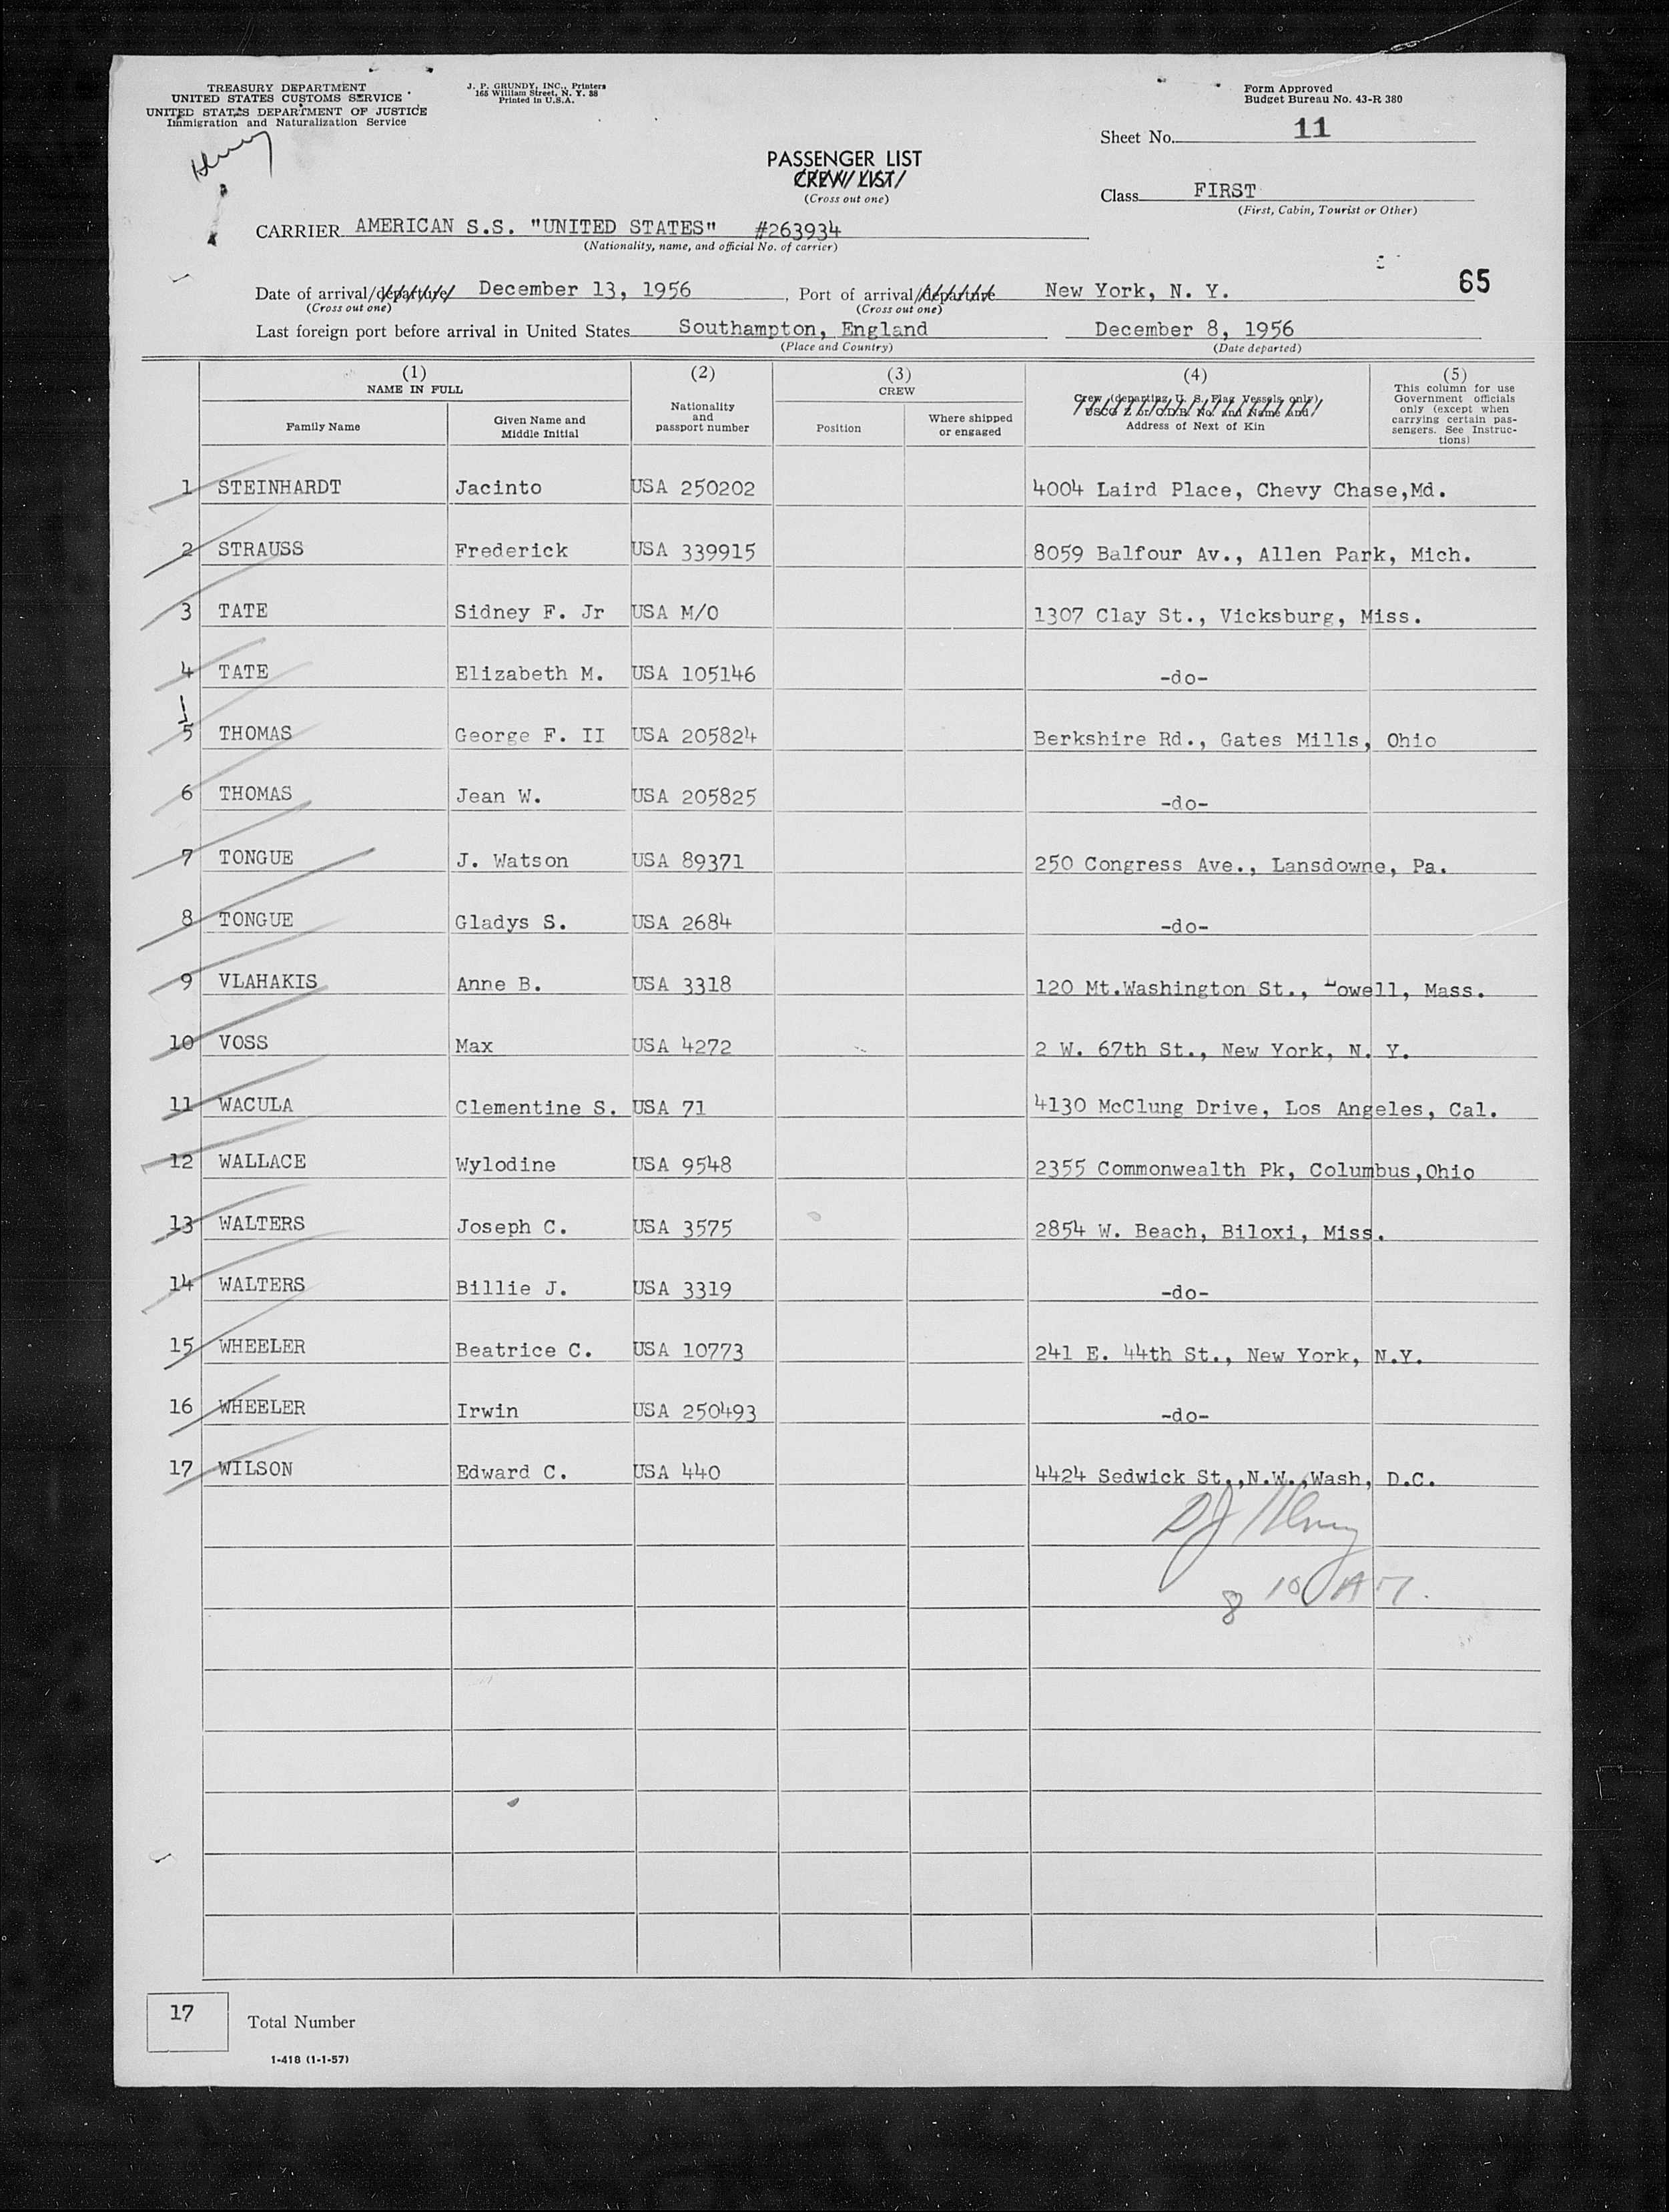 TREASURY DEPARTMENT
UNITED STATES CUSTOMS SERVICE
UNITED STATES DEPARTMENT OF JUSTICE
Immigration and Naturalization Service
J. P. GRUNDY, INC., Printers
165 William Street, N. Y. 38
Printed in U.S.A.
Form Approved
Budget Bureau No. 43-R 380
Sheet No. 11
Henry
PASSENGER LIST
CREW LIST
(Cross out one)
Class FIRST
(First, Cabin, Tourist or Other)
CARRIER AMERICAN S.S. "UNITED STATES" #263934
(Nationality, name, and official No. of carrier)
65
Date of arrival/departure December 13, 1956, Port of arrival/departure New York, N. Y.
(Cross out one) (Cross out one)
Last foreign port before arrival in United States Southampton, England December 8, 1956
(Place and Country) (Date departed)
(1) (2) (3) (4) (5)
NAME IN FULL
Family Name
Given Name and Middle Initial
Nationality and passport number
CREW
Position
Where shipped or engaged
Crew (departing U. S. Flag Vessels only)
USCG Z or C.D.B. No. and Name and
Address of Next of Kin
This column for use Government officials only (except when carrying certain passengers. See Instructions)
1 STEINHARDT Jacinto USA 250202 4004 Laird Place, Chevy Chase,Md.
2 STRAUSS Frederick USA 339915 8059 Balfour Av., Allen Park, Mich.
3 TATE Sidney F. Jr USA M/O 1307 Clay St., Vicksburg, Miss.
4 TATE Elizabeth M. USA 105146 -do-
5 THOMAS George F. II USA 205824 Berkshire Rd., Gates Mills, Ohio
6 THOMAS Jean W. USA 205825 -do-
7 TONGUE J. Watson USA 89371 250 Congress Ave., Lansdowne, Pa.
8 TONGUE Gladys S. USA 2684 -do-
9 VLAHAKIS Anne B. USA 3318 120 Mt.Washington St., Lowell, Mass.
10 VOSS Max USA 4272 2 W. 67th St., New York, N. Y.
11 WACULA Clementine S. USA 71 4130 McClung Drive, Los Angeles, Cal.
12 WALLACE Wylodine USA 9548 2355 Commonwealth Pk, Columbus,Ohio
13 WALTERS Joseph C. USA 3575 2854 W. Beach, Biloxi, Miss.
14 WALTERS Billie J. USA 3319 -do-
15 WHEELER Beatrice C. USA 10773 241 E. 44th St., New York, N.Y.
16 WHEELER Irwin USA 250493 -do-
17 WILSON Edward C. USA 440 4424 Sedwick St.,N.W.,Wash, D.C.
Henry
8 10 AM.
17 Total Number
1-418 (1-1-57)